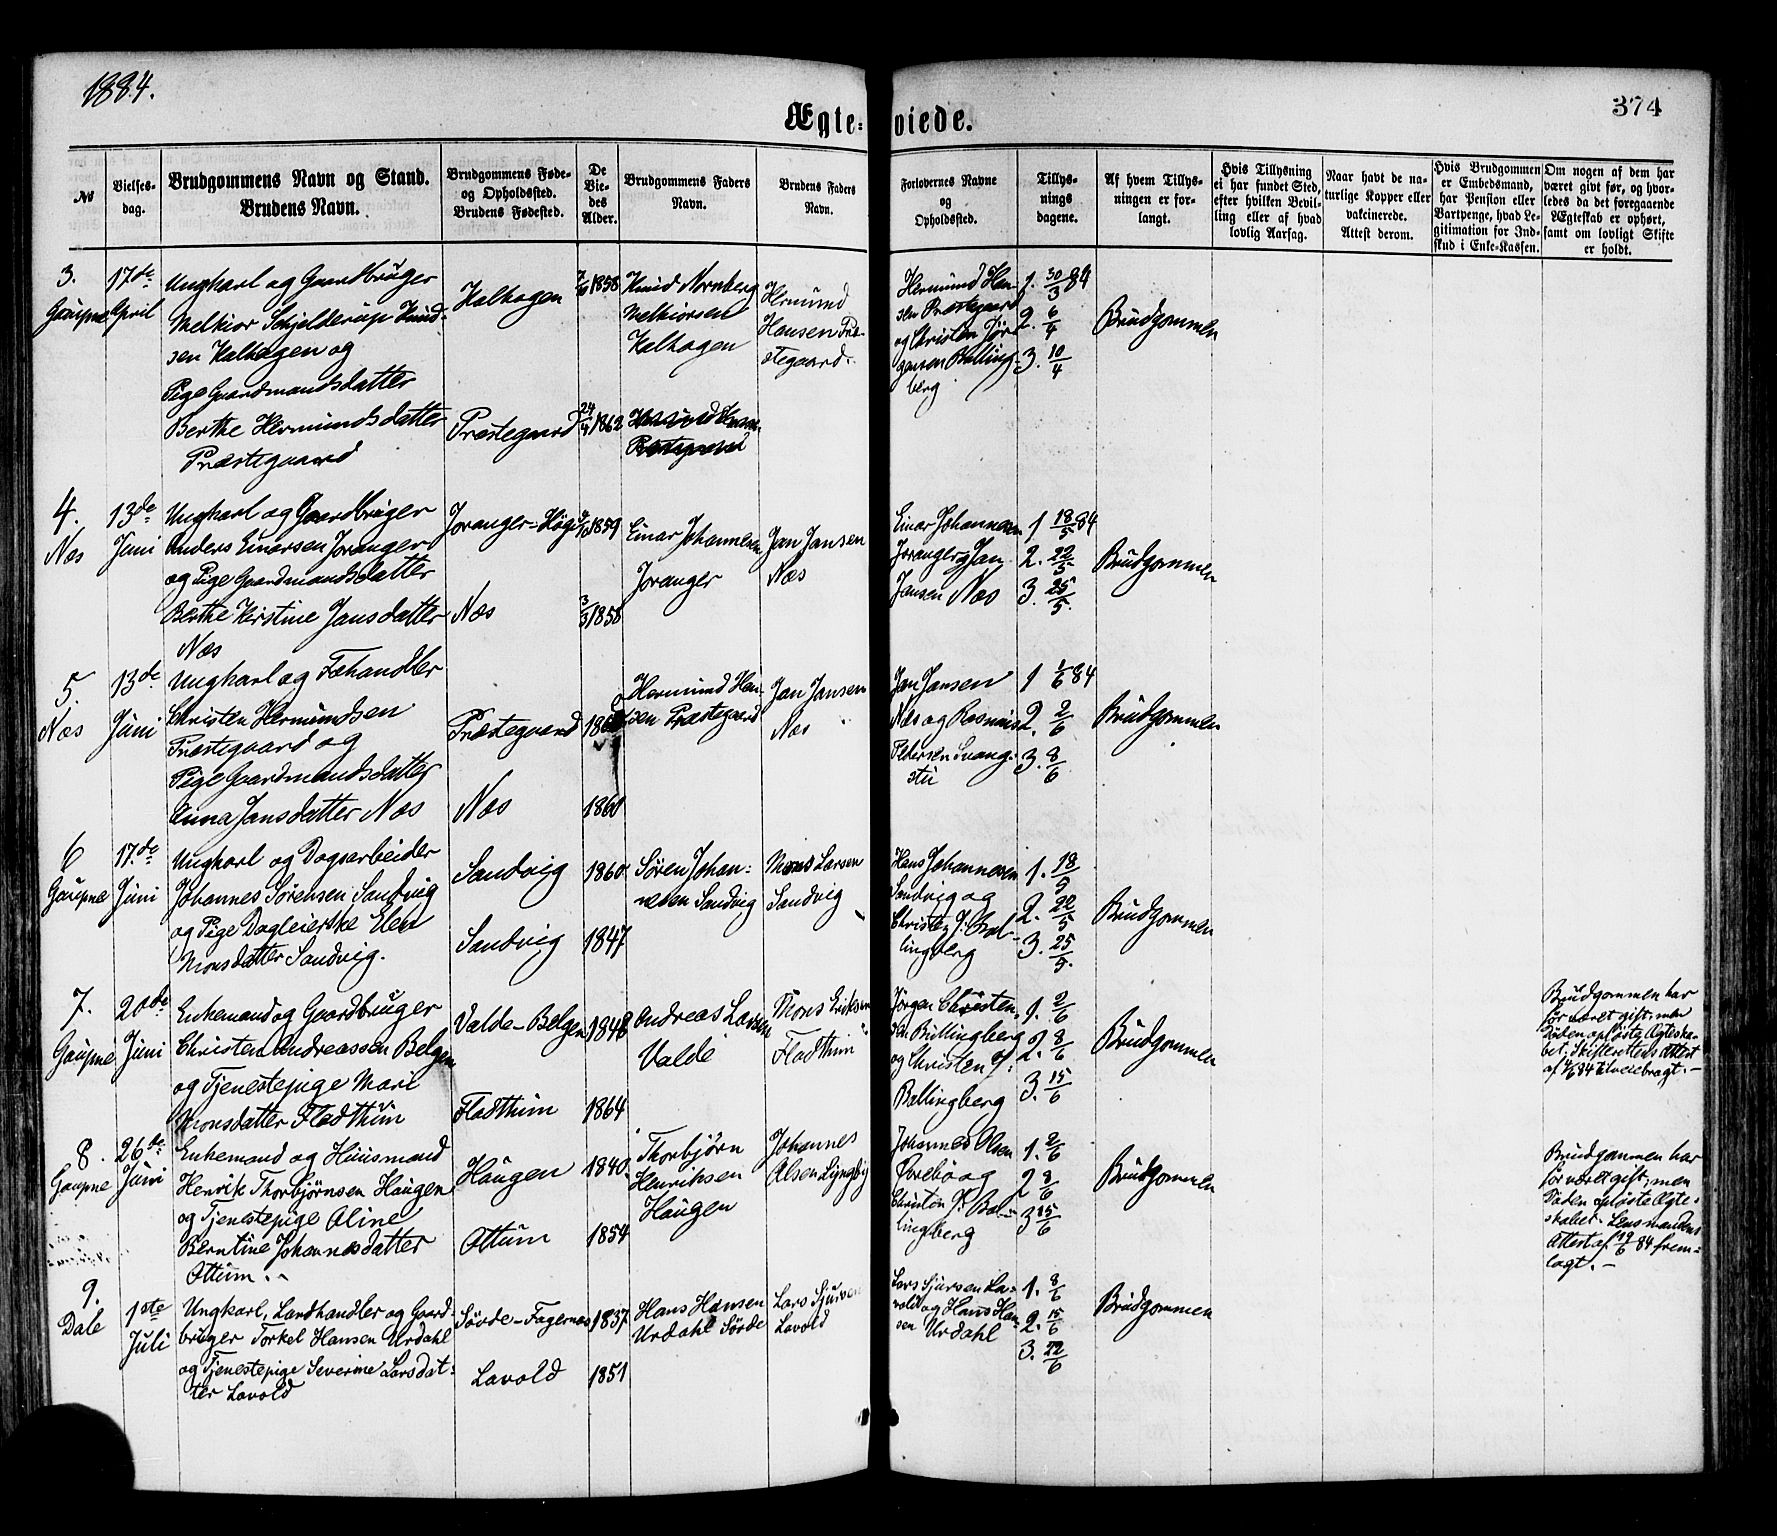 1884.
374
Ægteviede.
No
Vielses-
dag.
Brudgommens Navn og Stand.
Brudens Navn.
Brudgommens Føde-
og Opholdsted.
Brudens Fødested.
De
Vie-
des
Alder.
Brudgommens Faders
Navn.
Brudens Faders
Navn.
Forlovernes Navne
og
Opholdsted.
Tillys-
nings
dagene.
Af hvem Tillys-
ningen er for-
langt.
Hvis Tillysning
ei har fundet Sted,
efter hvilken Bevil-
ling eller af hvad
lovlig Aarsag.
Naar havt de na-
turlige Kopper eller
vakcinerede.
Attest derom.
Hvis Brudgommen
er Embedsmand,
har Pension eller
Vartpenge, hvad Le-
gitimation for Ind-
skud i Enke-Kassen.
Om nogen af dem har
været givt før, og hvor-
ledes da det foregaaende
Ægteskab er ophørt,
samt om lovligt Skifte
er holdt.
3.
Gaupne
17de
April
Ungkarl og Gaardbruger
Melkior Schjelderup Knud-
sen Kalhagen og
Pige Gaardmandsdatter
Berthe Hermundsdatter
Præstegaard
Kalhagen
Præstegaard
1858
24/4 1862
Knud Nornberg
Melkiorsen
Kalhagen
Hermund
Hansen Præ-
stegaard.
Hermund Han-
sen Præstegaard
og Christen Jør-
gensen Balling-
berg
1. 30/3 84
2. 6/4
3. 10/4
Brudgommen
4.
Næs
13de
Juni
Ungkarl og Gaardbruger
Anders Einarsen Joranger
og Pige Gaardmandsdatter
Berthe Kirstine Jansdatter
Næs
Joranger-Høgi
Næs
1859
3/3 1858
Einar Johannesen
Joranger
Jan Jansen
Næs
Einar Johannesen
Joranger og Jan
Jansen Næs
1 18/5 84
2. 22/5
3. 25/5.
Brudgommen
5.
Næs
13de
Juni
Ungkarl og Fæhandler
Christen Hermundsen
Præstegaard og
Pige Gaardmandsdatter
Anna Jansdatter Næs
Præstegaard
Næs
1860
Hermund Han-
sen Præstegaard
Jan Jansen
Næs
Jan Jansen
Næs og Rasmus
Pedersen Svang-
stu
1 1/6 84
2. 2/6
3. 8/6
Brudgommen
6
Gaupne
17.de
Juni
Ungkarl og Dagsarbeider
Johannes Sørensen Sandvig
og Pige Dagleierske Elen
Monsdatter Sandvig.
Sandvig
Sandvig
1860
1847
Søren Johan-
nesen Sandvig
Mons Larsen
Sandvig
Hans Johannesen
Sandvig og
Christen J. Bal-
lingberg
1. 18/5
2. 22/5
3. 25/5.
Brudgommen
7.
Gaupne
20de
Juni
Enkemand og Gaardbruger
Christen Andreassen Belgen
og Tjenestepige Mari
Monsdatter Fladthun
Valde-Belgen
Fladthun
1848
1864
Andreas Larsen
Valde
Mons Eriksen
Fladthun
Jørgen Christen-
sen Bullingberg
og Christen J.
Ballingberg
1. 2/6
2. 8/6
3. 15/6
Brudgommen
Brudgommen har
før været gift, men
Døden opløste Ægteska-
bet; Skifterettens Attest
af 4/6 84 tilveiebragt.-
8.
Gaupne
26de
Juni
Enkemand og Huusmand
Henrik Thorbjørnsen Haugen
og Tjenestepige Oline
Berntine Johannesdatter
Ottum.
Haugen
Ottum
1840
1854
Thorbjørn
Henriksen
Haugen
Johannes
Olsen Lyngbig
Johannes Olsen
Ørebø og
Christen J. Bal-
lingberg
1. 2/6
2 8/6
3 15/6
Brudgommen
Brudgommen har
før været gift, men
Døden opløste Ægte-
skabet. Lensmandens
Attest af 19/6 84 frem-
lagt.-
9.
Dale
1ste
Juli
Ungkarl, Landhandler og Gaard-
bruger Torkel Hansen Urdahl
og Tjenestepige Severine Larsdat-
ter Lavold
Sørde-Fagernæs
Lavold
1837
1851
Hans Hansen
Urdahl Sørde
Lars Sjursen
Lavold
Lars Sjursen La-
vold og Hans Han-
sen Urdahl
1. 8/6
2. 15/6
3. 22/6
Brudgommen